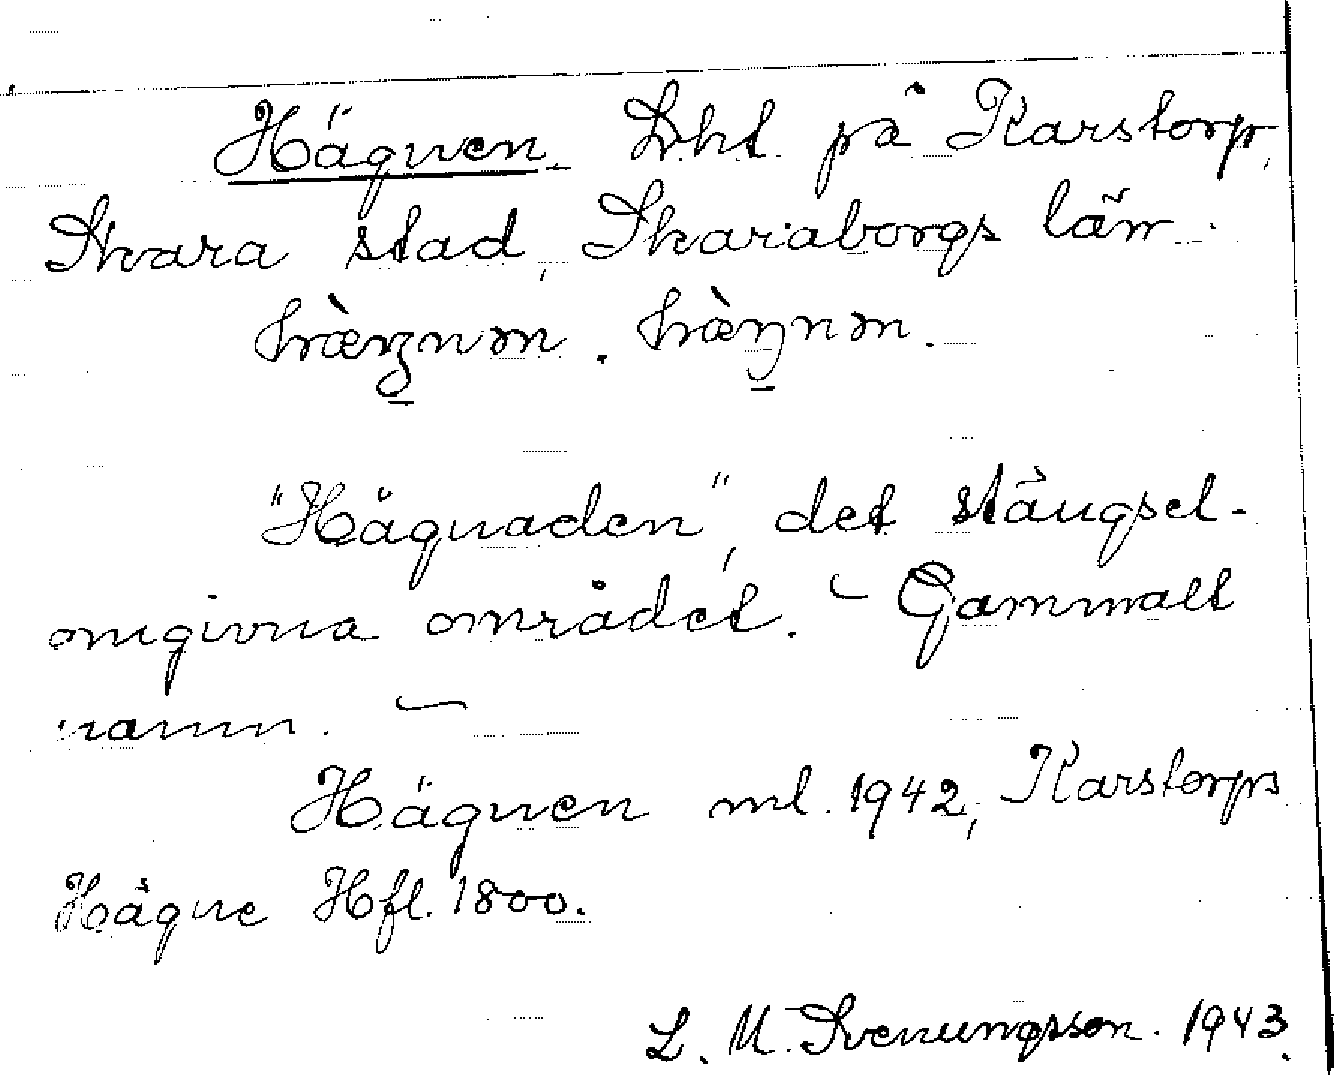 Hägnen. Lht. på Karstorp,
Skara stad, Skaraborgs län.
hæ̀ŋnən. hæ̀ŋnən.
"Hägnaden", det stängsel-
omgivna området. - Gammalt
namn. -
Hägnen ml. 1942, Karstorps
Hägne Hfl. 1800.
L. M. Svenungsson. 1943.